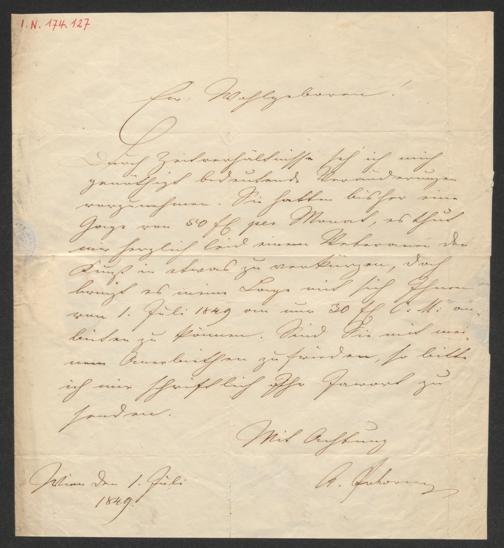 I. N. 174.127
Euer Wohlgeboren!
Durch Zeitverhältnisse seh ich mich
genöthigt bedeutende Veränderungen
vorzunehmen. Sie hatten bisher eine
Gage von 50 fl per Monat, es thut
mir herzlich leid einem Veteranen der
Kunst in etwas zu verkürzen, doch
bringt es meine Lage mit sich Ihnen
von 1. Juli 1849 an nur 30 fl C. M. an-
bieten zu können. Sind Sie mit mei-
nem Anerbiethen zufrieden, so bitte
ich mir schriftlich Ihr zu
senden.
Mit Achtung
A.
Wien den 1. Juli
1849.